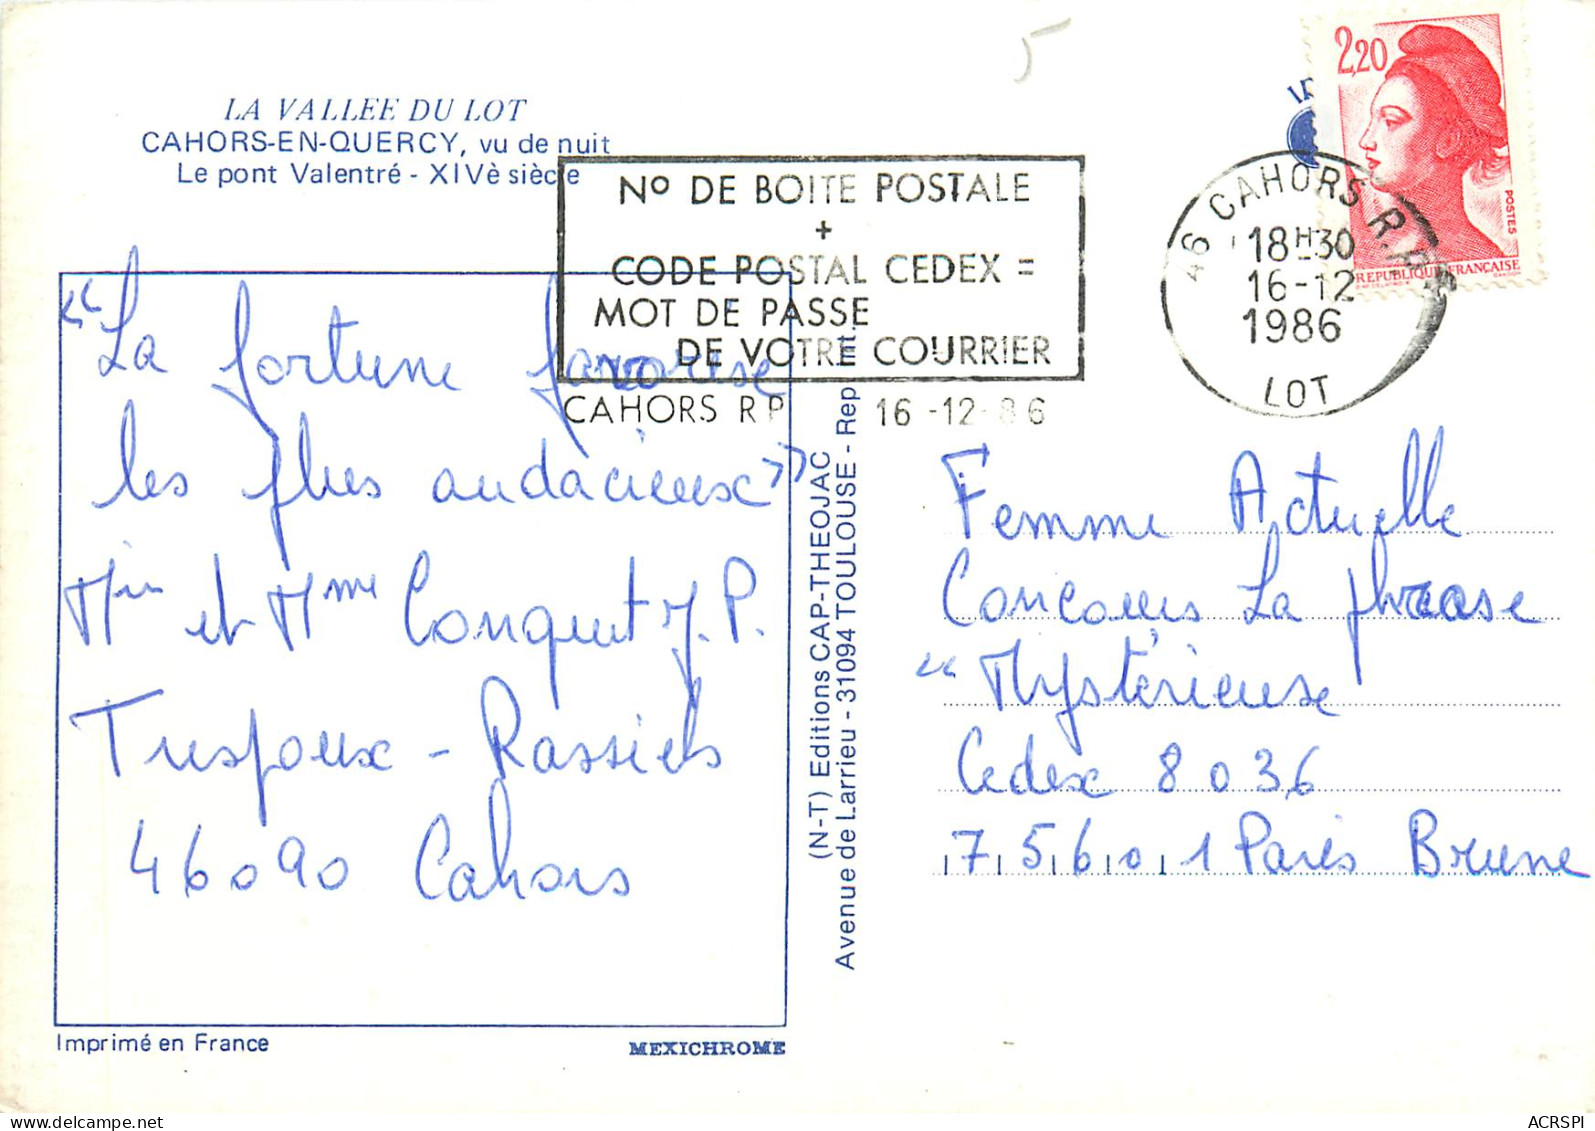 LA VALLEE DU LOT
CAHORS-EN-QUERCY, vu de nuit
Le pont Valentré - XIVè siècle
5
2,20
POSTES
REPUBLIQUE FRANÇAISE
46 CAHORS R.P.
18H30
16-12
1986
LOT
N° DE BOITE POSTALE
+
CODE POSTAL CEDEX =
MOT DE PASSE
DE VOTRE COURRIER
CAHORS R P 16 -12-86
"La fortune favorise
les plus audacieux"
Mr et Mme Conquet J.P.
Trespoux - Rassiels
46090 Cahors
(N-T) Editions CAP-THEOJAC
Avenue de Larrieu - 31094 TOULOUSE - Rep. Int.
Femme Actuelle
Concours La phrase
"Mystérieuse
Cedex 8036
75601 Paris Brune
Imprimé en France
MEXICHROME
ACRSPI